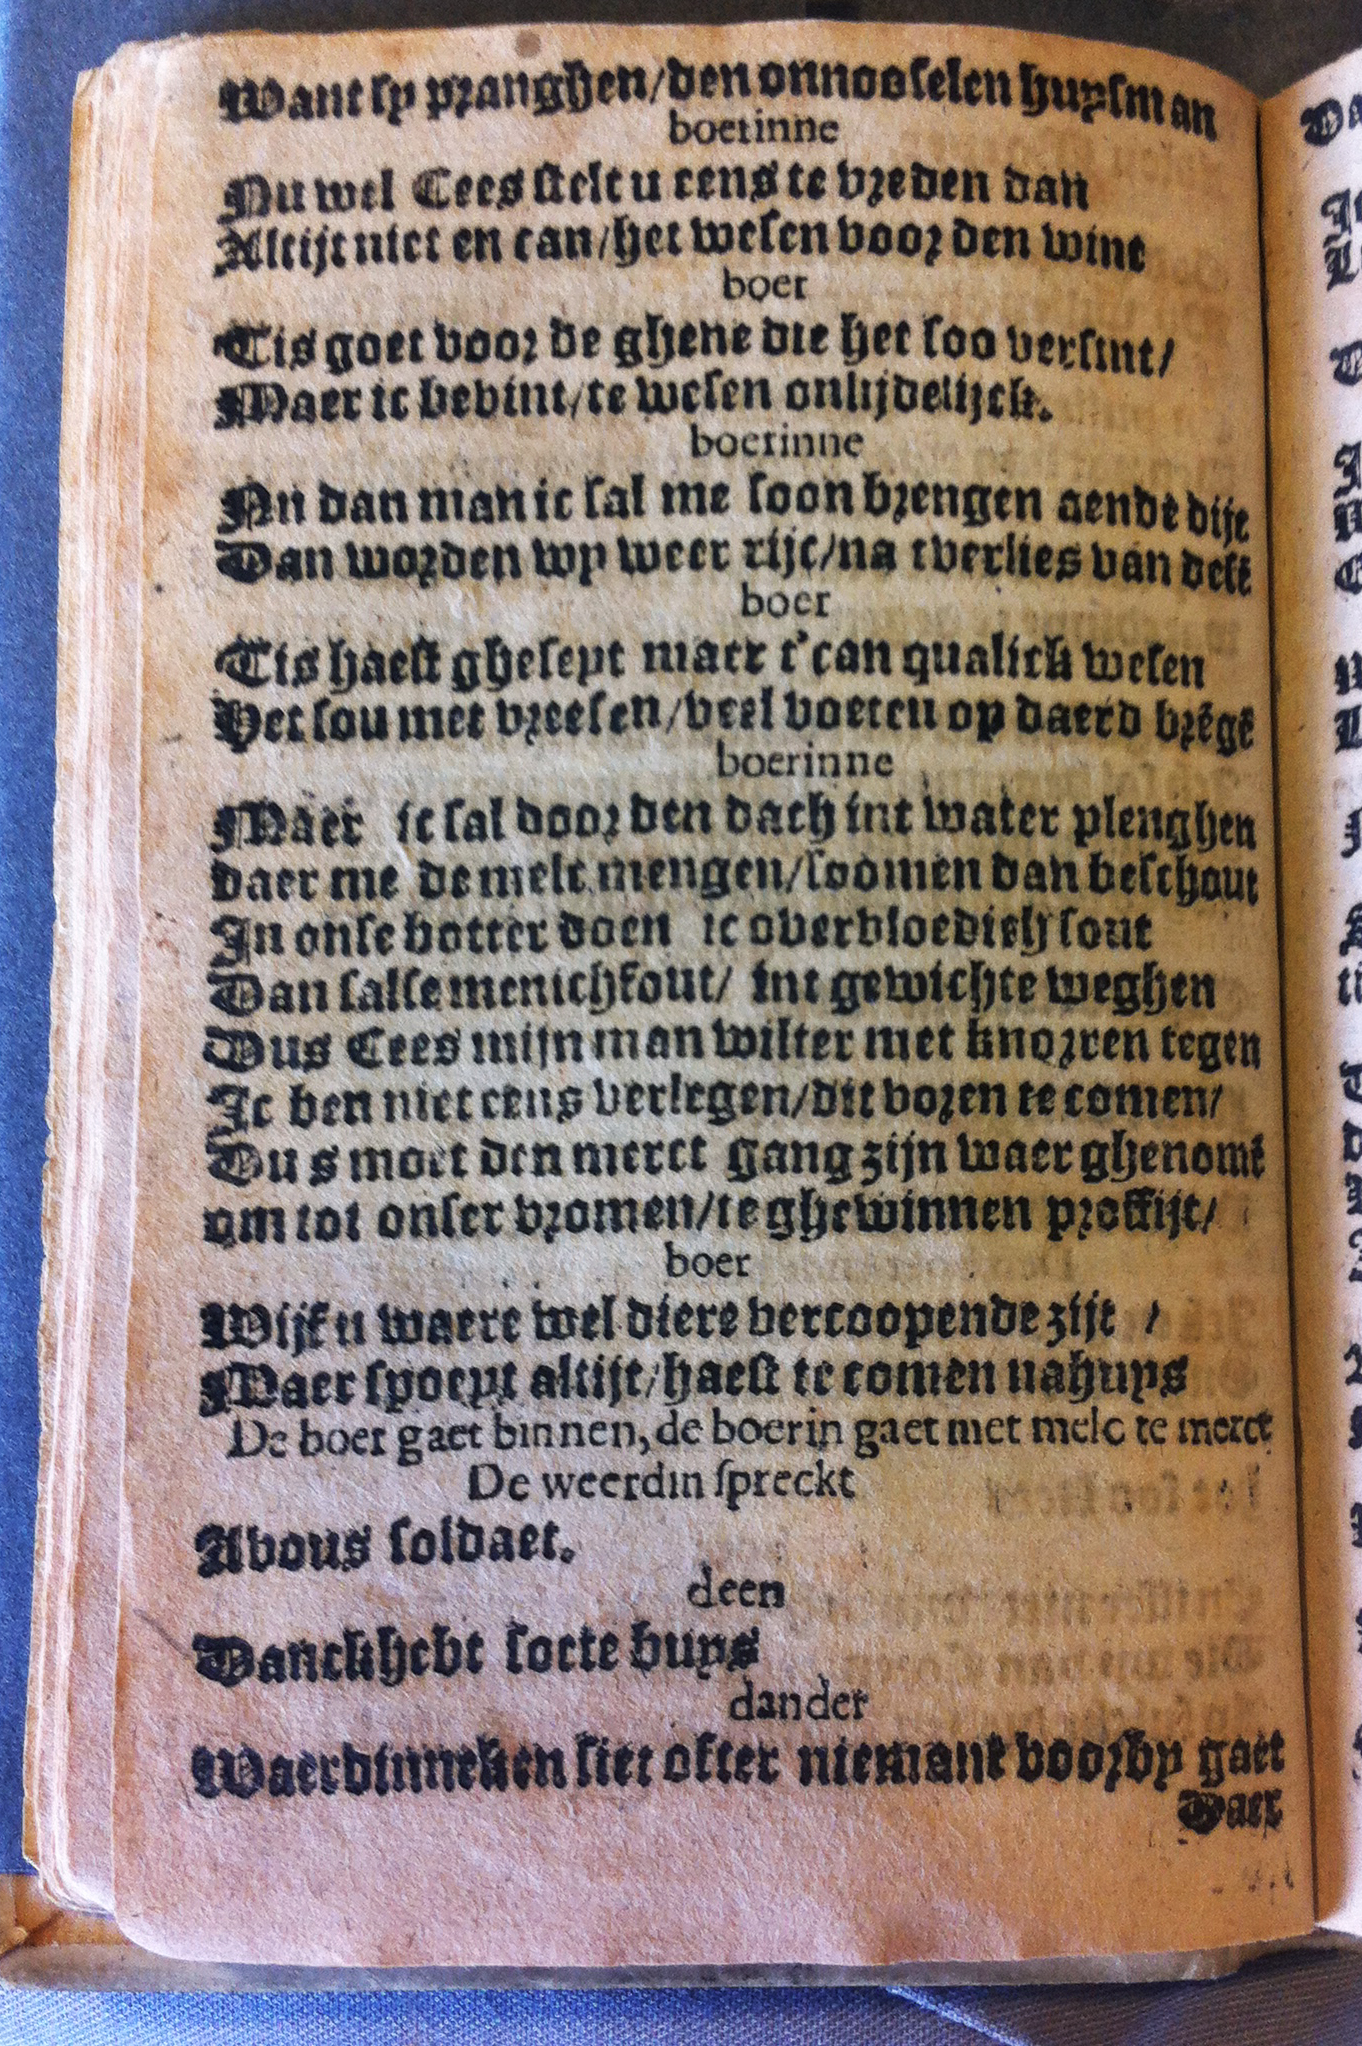 Want sy pranghen/den onnooselen huysman
boerinne
Nu wel Cees stelt u eens te vreden dan
Altijt niet en can/het wesen voor den wint
boer
Tis goet voor de ghene die het soo versint/
Maer ic bevint/te wesen onlijdelijck.
boerinne
Nu dan man ic sal me soon brengen aende dijc
Dan worden wy weer rijc/na tverlies van desē
boer
Tis haest gheseyt maer t'can qualick wesen
Het sou met vreesen/veel boeren op daerd brēgē
boerinne
Maer ic sal door den dach int water plenghen
daer me de melc mengen/soomen dan beschout
In onse botter doen ic overvloedich sout
Dan salse menichfout/ int gewichte weghen
Dus Cees mijn man wilter niet knorren tegen
Ic ben niet eens verlegen/dit voren te comen/
Dus moet den merct gang zijn waer ghenomē
om tot onser vromen/te ghewinnen proffijt/
boer
Wijf u waere wel diere vercoopende zijt /
Maer spoeyt altijt/haest te comen nahuys
De boer gaet binnen, de boerin gaet met melc te merct
De weerdin spreckt
Avous soldaet.
deen
Danckhebt soete buys
dander
Waerdinneken siet ofter niemant voorby gaet
Daer